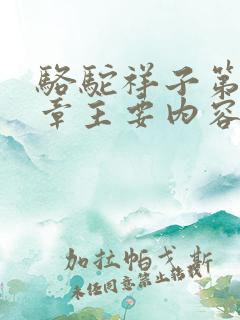 骆駝祥子第
章主要内容
加拉帕戈斯
未经同意禁止搭载